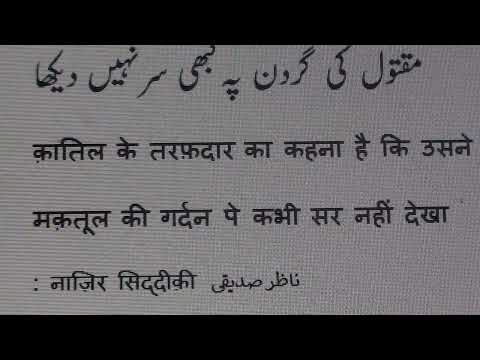 مقتول کی گردن پہ کبھی سر نہیں دیکھا
क़ातिल के तरफ़दार का कहना है कि उसने
मक़तूल की गर्दन पे कभी सर नहीं देखा
: नाज़िर सिद्दीक़ी ناظر صدیقی